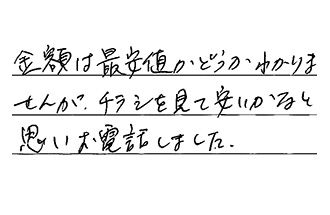 金額は最安値かどうかわかりま
せんが、チラシを見て安いかなと
思いお電話しました.